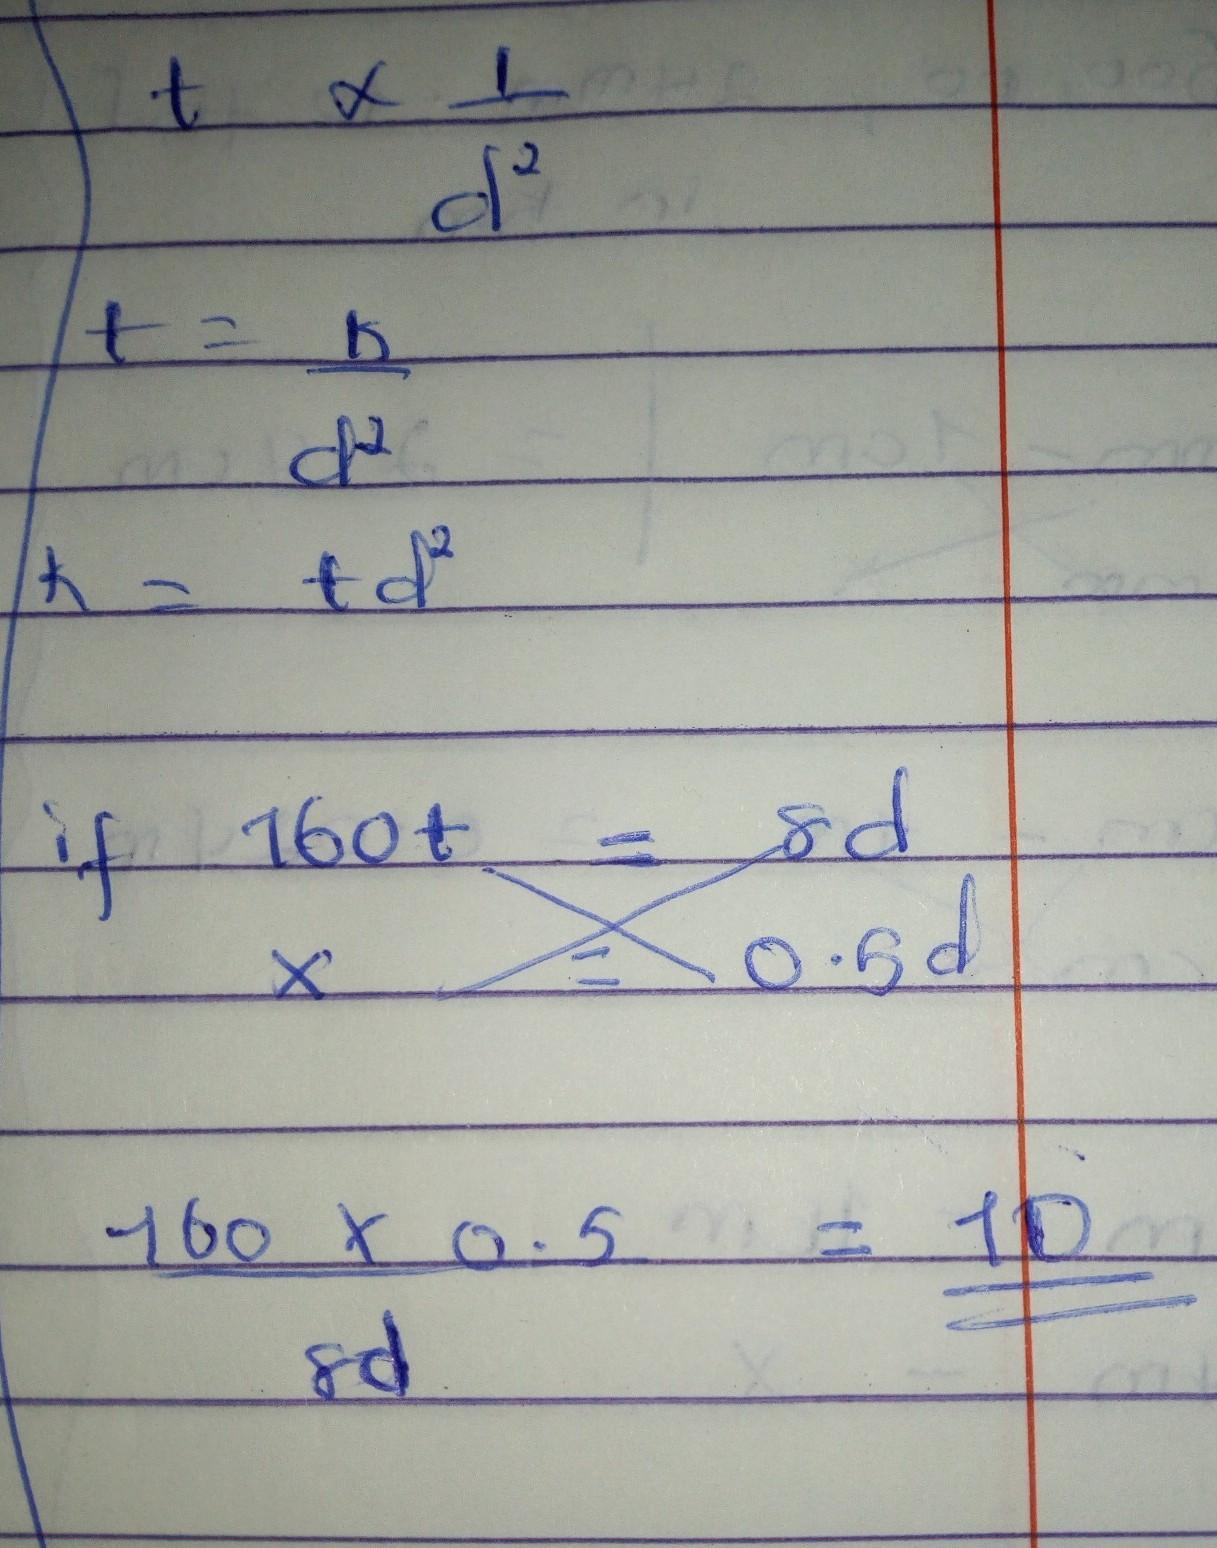 t ∝ 1
d²
t = k
d²
k = td²
if 160t = 8d
x = 0.5d
160 x 0.5 = 10
8d